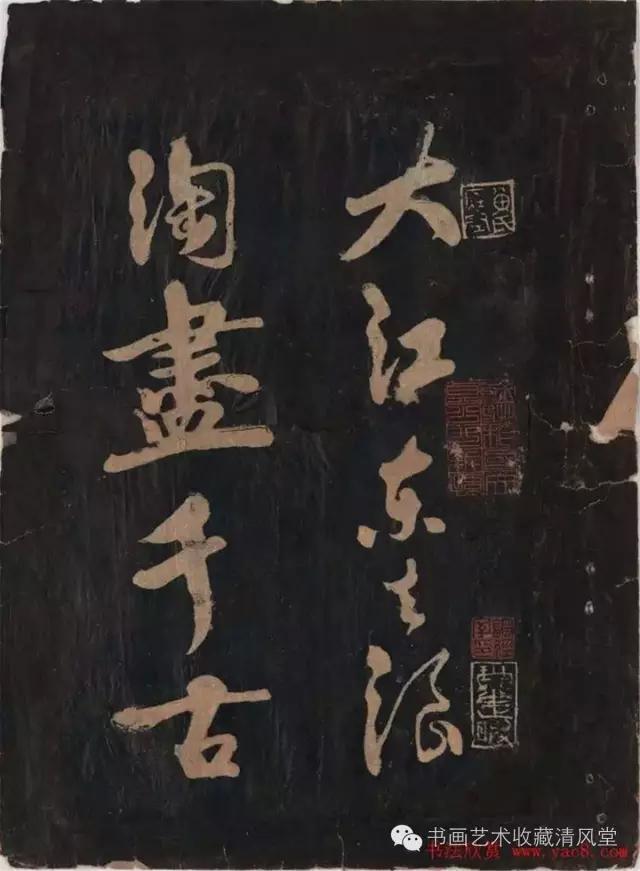 大江东去浪
淘盡千古
书画艺术收藏清风堂
书法欣赏 www.yac8.com